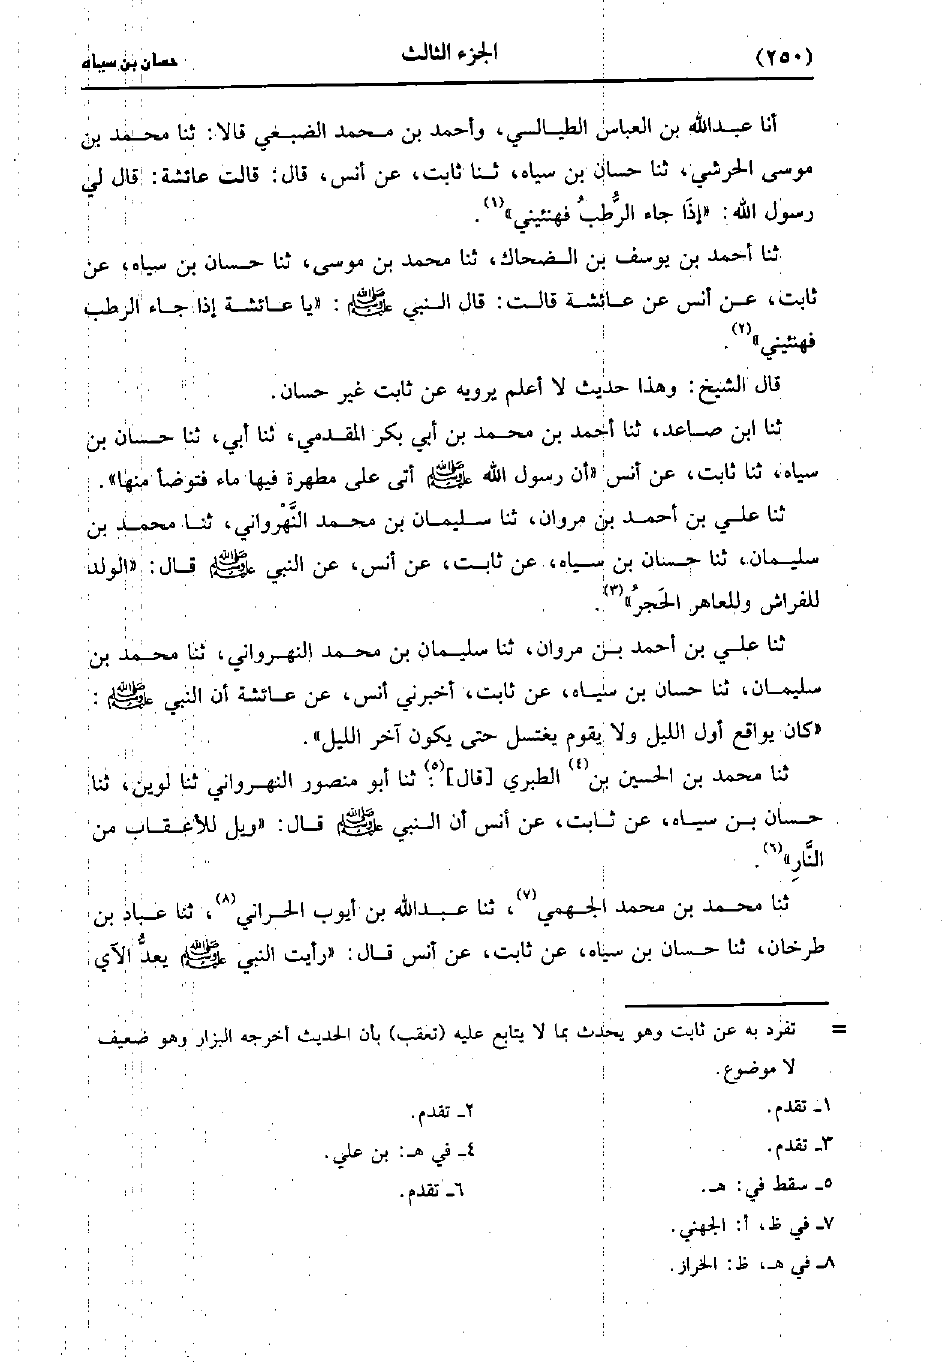 (٢٥٠) الجزء الثالث حسان بن سياه
أنا عبدالله بن العباس الطيالسي، وأحمد بن محمد الضبعي قالا: ثنا محمد بن
موسى الحرشي، ثنا حسان بن سياه، ثنا ثابت، عن أنس، قال: قالت عائشة: قال لي
رسول الله: «إذَا جاء الرُّطبُ فهنئيني»(١).
ثنا أحمد بن يوسف بن الضحاك، ثنا محمد بن موسى، ثنا حسان بن سياه، عن
ثابت، عن أنس عن عائشة قالت: قال النبي ﷺ: «يا عائشة إذا جاء الرطب
فهنئيني»(٢).
قال الشيخ: وهذا حديث لا أعلم يرويه عن ثابت غير حسان.
ثنا ابن صاعد، ثنا أحمد بن محمد بن أبي بكر المقدمي، ثنا أبي، ثنا حسان بن
سياه، ثنا ثابت، عن أنس «أن رسول الله ﷺ أتى على مطهرة فيها ماء فتوضأ منها».
ثنا علي بن أحمد بن مروان، ثنا سليمان بن محمد النَّهْرواني، ثنا محمد بن
سليمان، ثنا حسان بن سياه، عن ثابت، عن أنس، عن النبي ﷺ قال: «الولد
للفراش وللعاهر الحَجرُ»(٣).
ثنا علي بن أحمد بن مروان، ثنا سليمان بن محمد النهرواني، ثنا محمد بن
سليمان، ثنا حسان بن سياه، عن ثابت، أخبرني أنس، عن عائشة أن النبي ﷺ:
«كان يواقع أول الليل ولا يقوم يغتسل حتى يكون آخر الليل».
ثنا محمد بن الحسين بن(٤) الطبري [قال](٥): ثنا أبو منصور النهرواني ثنا لوين، ثنا
حسان بن سياه، عن ثابت، عن أنس أن النبي ﷺ قال: «ويل للأعقاب من
النَّارِ»(٦).
ثنا محمد بن محمد الجهمي(٧)، ثنا عبدالله بن أيوب الحراني(٨)، ثنا عباد بن
طرخان، ثنا حسان بن سياه، عن ثابت، عن أنس قال: «رأيت النبي ﷺ يعدُّ الآي
= تفرد به عن ثابت وهو يحدث بما لا يتابع عليه (تعقب) بأن الحديث أخرجه البزار وهو ضعيف
لا موضوع.
١ـ تقدم. ٢ـ تقدم.
٣ـ تقدم. ٤ـ في هـ: بن علي.
٥ـ سقط في: هـ. ٦ـ تقدم.
٧ـ في ظ، أ: الجهني.
٨ـ في هـ، ظ: الخراز.